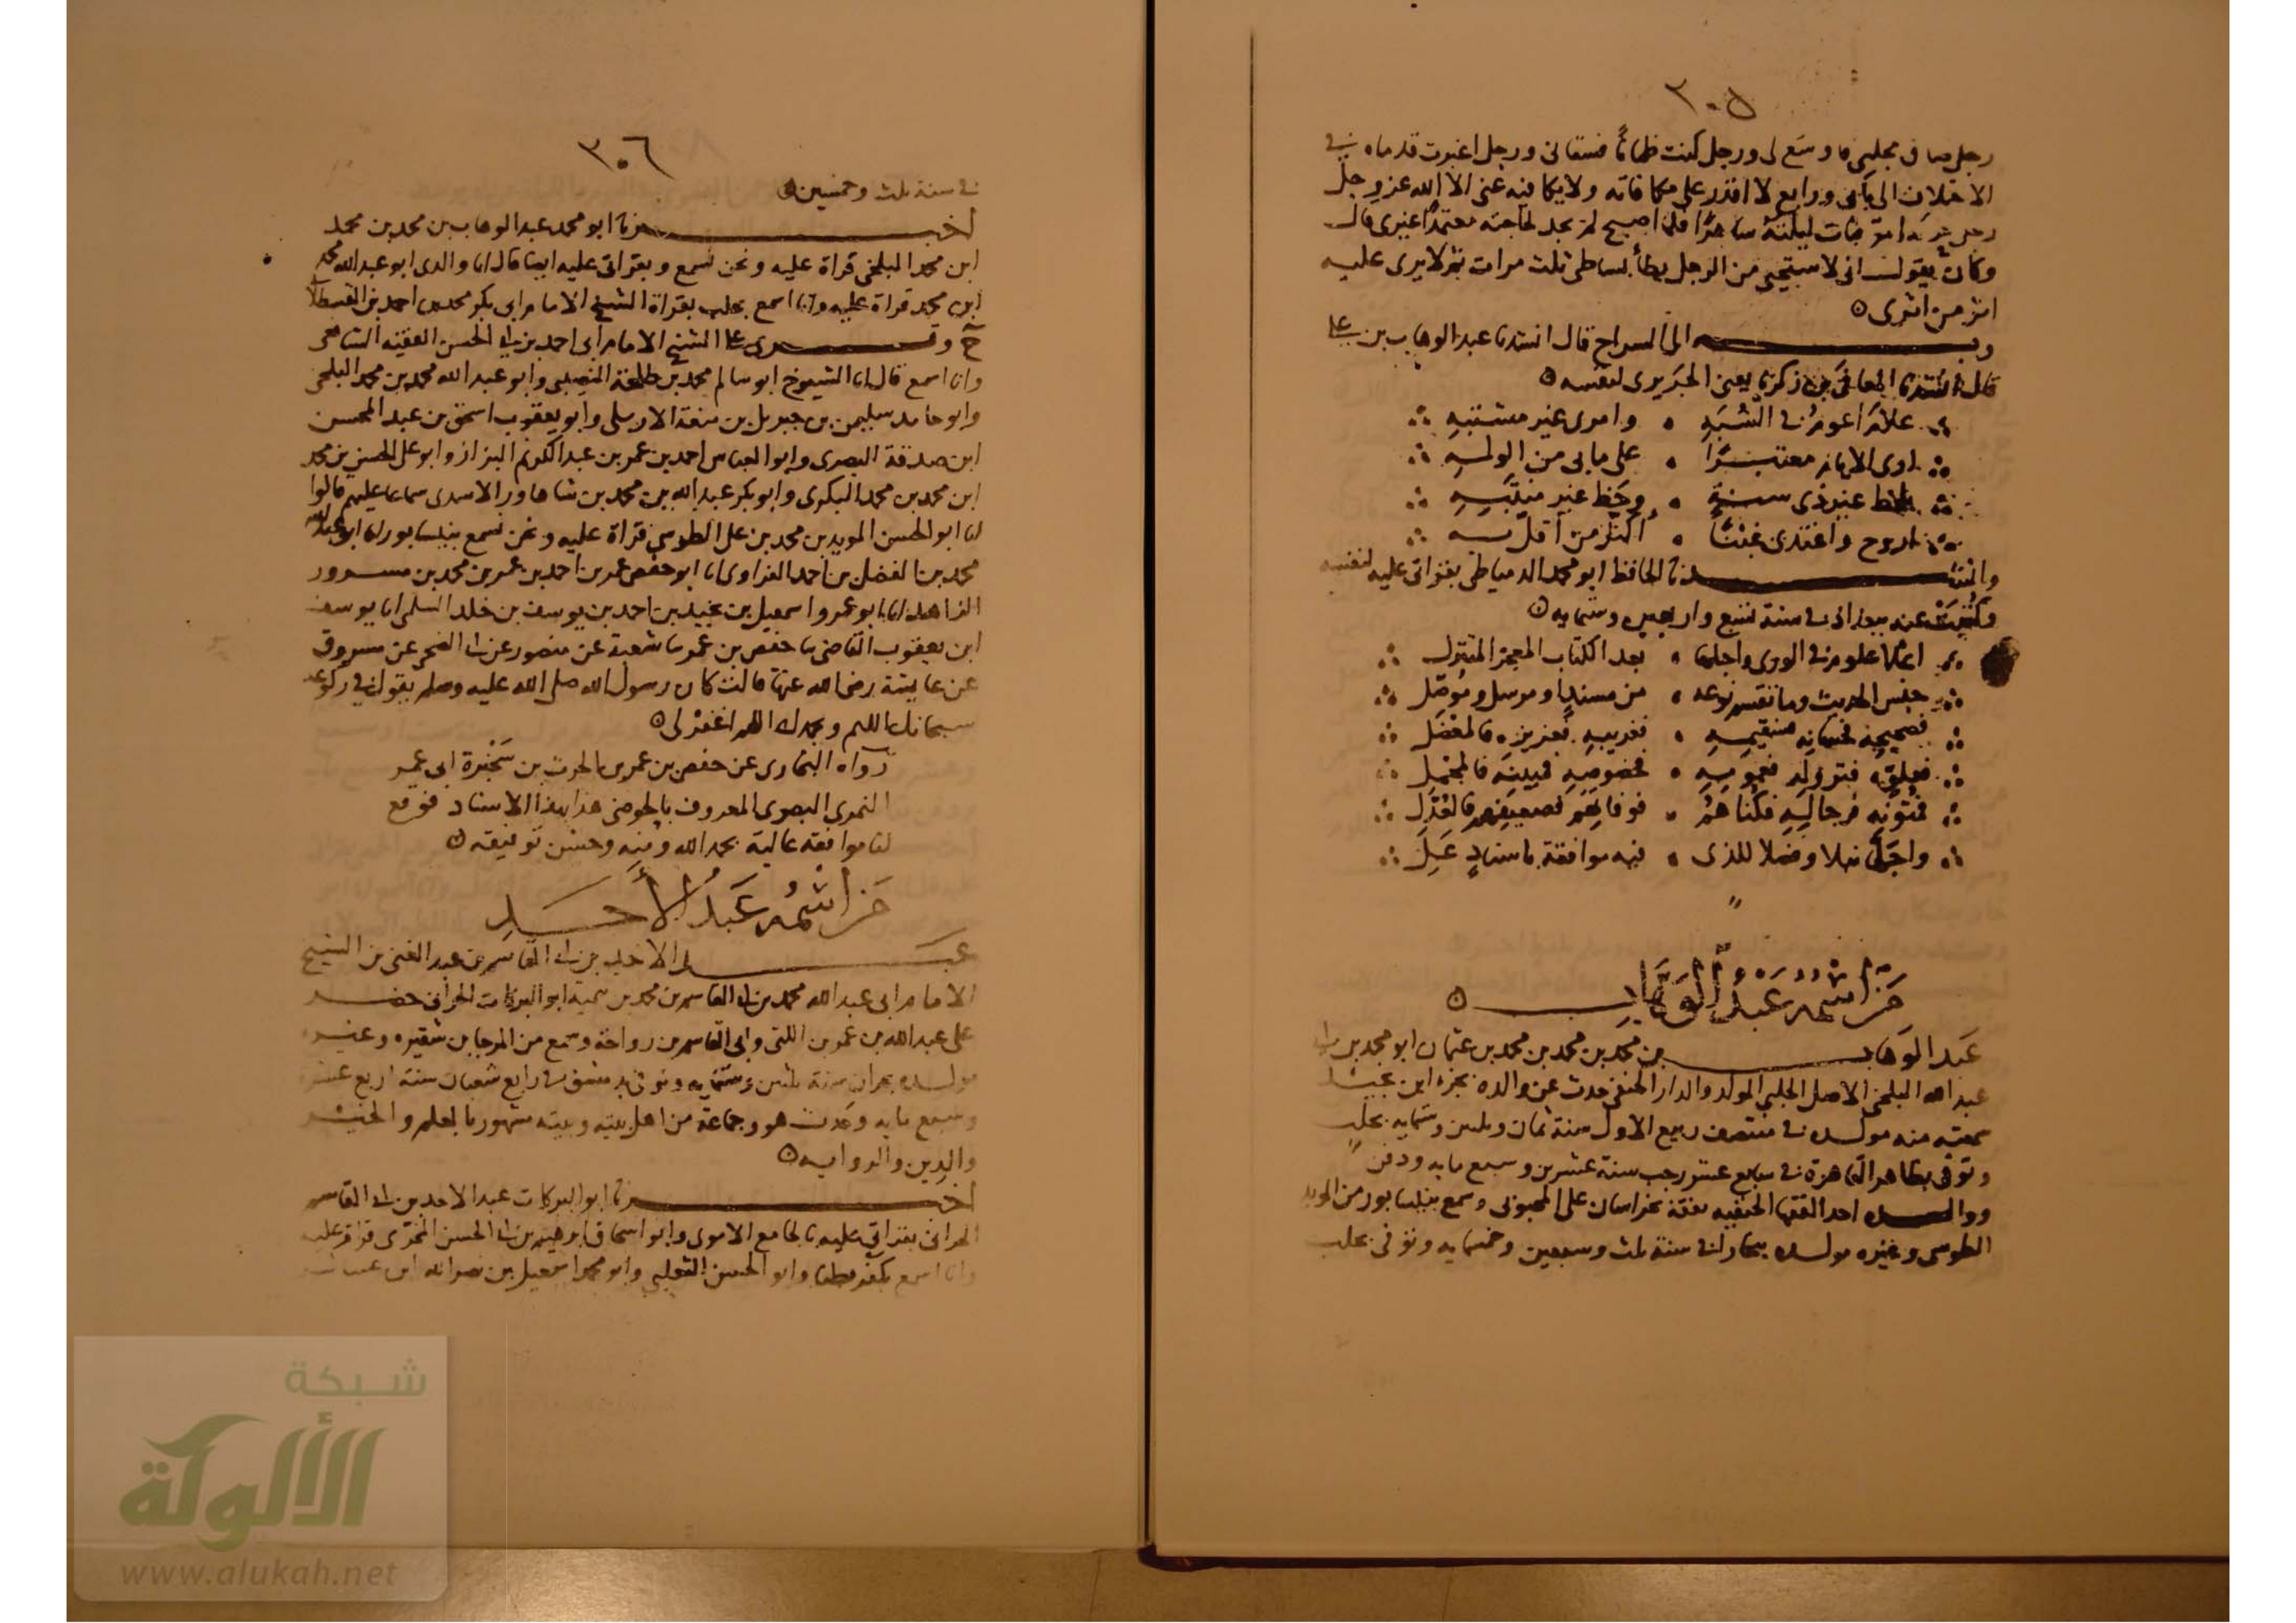 ٣٠٥
رجل صاق مجلسي فاوسع لى ورجل كنت ظمانا فسقانى ورجل اغبرت قدماه فى
الاختلاف الى بابى ورابع لا اقدر على مكافاته ولا يكافيه عنى الا الله عز وجل
رجل ليلته ساهرا فلما اصبح لم يجد لحاجته معتمدا غيرى قال
وكان يقول انى لا ستحيى من الرجل يطأ بساطى ثلث مرات ثم لا يرى عليه
اثر من اثرى
وبه الى السراج قال انشدنا عبد الوهاب بن على
قال انشدنا المعافى بن زكريا يعنى الجريرى لنفسه
علام اعوم فى الشبه وامرى غير مشتبه
ارى الايام معتبرا على ما بى من الوله
بلحظ غير ذى سنة وحظ غير منتبه
اروح واغتدى غبنا اكثر من اقل به
وانشدنا الحافظ ابو محمد الدمياطى بقراتى عليه لنفسه
وكتبت عنه ببغداد فى سنة تسع واربعين وستمايه
اعلا علوم فى الورى واجلها بعد الكتاب المعجز المتنزل
جنس الحديث وما تقسم نوعه من مسند او مرسل وموصل
فصحيحه فحسانه فسقيمه فغريبه فعزيزه فالمعضل
فعمومه فخصوصه فمبينه فالمجمل
فمتونه فرجاله فكناهم فوفاتهم فضعيفهم فالعدل
واجل نبلا وفضلا للذى فيه موافقة باسناد على
من اسمه عبد الوهاب
عبد الوهاب بن محمد بن محمد بن محمد بن عثمان ابو محمد بن ابى
عبد الله البلخى الاصل الحلبى المولد والدار الحنفى حدث عن والده بجزء ابن نجيد
سمعته منه مولده فى منتصف ربيع الاول سنة ثمان وثلثين وستمايه بحلب
وتوفى بظاهر القاهرة فى سابع عشر رجب سنة عشرين وسبع مايه ودفن
ووالده احد الفقها الحنفيه تفقه بخراسان على المحبوبى وسمع بنيسابور من المويد
الطوسى وغيره مولده ببخارا فى سنة ثلث وسبعين وخمسمايه وتوفى بحلب
٣٠٦
فى سنة ثلث وخمسين
اخبرنا ابو محمد عبد الوهاب بن محمد بن محمد
ابن محمد البلخى قراة عليه ونحن نسمع وبقراتى عليه ايضا قال انا والدى ابو عبد الله محمد
ابن محمد قراة عليه وانا اسمع بحلب بقراة الشيخ الامام ابى بكر محمد بن احمد بن القسطلانى
ح وقرى على الشيخ الامام ابى احمد بن ابى الحسن الفقيه الشافعى
وانا اسمع قال انا الشيوخ ابو سالم محمد بن طلحة النصيبى وابو عبد الله محمد بن محمد البلخى
وابو حامد سليمن بن جبريل بن منعة الاربلى وابو يعقوب اسحق بن عبد المحسن
ابن صدقة البصرى وابو العباس احمد بن عمر بن عبد الكريم البزاز وابو على الحسن بن محمد
ابن محمد بن محمد البكرى وابو بكر عبد الله بن محمد بن شاهاور الاسدى سماعا عليهم قالوا
انا ابو الحسن المويد بن محمد بن على الطوسى قراة عليه ونحن نسمع بنيسابور انا ابو عبد الله
محمد بن الفضل بن احمد الفراوى انا ابو حفص عمر بن احمد بن عمر بن محمد بن مسرور
الزاهد انا ابو عمرو اسمعيل بن نجيد بن احمد بن يوسف بن خلد السلمى انا يوسف
ابن يعقوب القاضى ثنا حفص بن عمر ثنا شعبة عن منصور عن ابى الضحى عن مسروق
عن عايشة رضى الله عنها قالت كان رسول الله صلى الله عليه وسلم يقول فى ركوعه
سبحانك اللهم وبحمدك اللهم اغفر لى
رواه البخارى عن حفص بن عمر بن الحرث بن سخبرة ابى عمر
النمرى البصرى المعروف بالحوضى هذا بهذا الاسناد فوقع
لنا موافقة عالية بحمد الله ومنه وحسن توفيقه
من اسمه عبد الأحد
عبد الاحد بن ابى القاسم بن عبد الغنى بن الشيخ
الامام ابى عبد الله محمد بن ابى القاسم بن محمد بن تيمية ابو البركات الحرانى حضر
على عبد الله بن عمر بن اللتى وابى القاسم بن رواحة وسمع من المرجا بن شقيره وغيره
مولده بحران سنة ثلثين وستمايه وتوفى بدمشق فى رابع شعبان سنة اربع عشرة
وسبع مايه وحدث هو وجماعة من اهل بيته وبيته مشهور بالعلم والخير
والدين والروايه
اخبرنا ابو البركات عبد الاحد بن ابى القاسم
الحرانى بقراتى عليه بالجامع الاموى وابو اسحاق ابرهيم بن ابى الحسن المخرمى قراة عليه
وانا اسمع بكفر بطنا وابو الحسن الثعلبى وابو محمد اسمعيل بن نصر الله ابن عساكر
شبكة
الألوكة
www.alukah.net